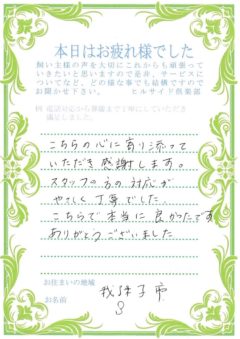 本日はお疲れ様でした
飼い主様の声を大切にこれからも頑張って
いきたいと思いますので是非、サービスに
ついてなど、どの様な事でも結構ですので
お聞かせ下さい。 ヒルサイド倶楽部
例 電話対応から葬儀まで丁寧にしていただき
満足しました。
こちらの心に寄り添って
いただき感謝します。
スタッフの方の対応が
やさしく丁寧でした。
こちらで本当に良かったです
ありがとうございました
お住まいの地域 我孫子市
お名前 S